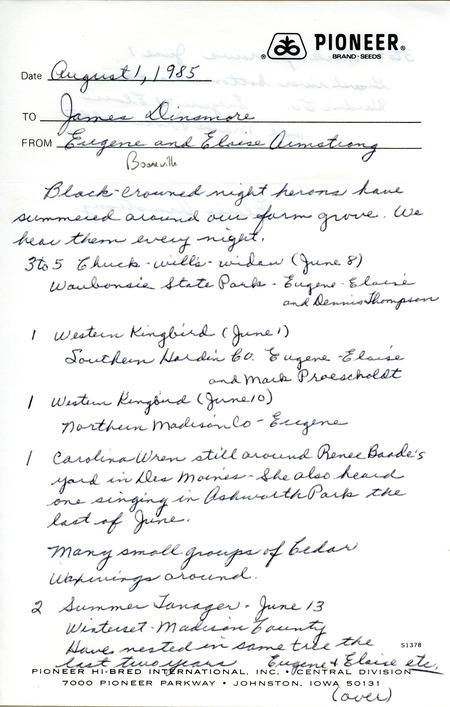 PIONEER®
BRAND · SEEDS
Date August 1, 1985
TO James Dinsmore
FROM Eugene and Eloise Armstrong
Booneville
Black-crowned night herons have
summered around our farm grove. We
hear them every night.
3 to 5 Chuck-will's-widow (June 8)
Waubonsie State Park - Eugene - Eloise
and Dennis Thompson
1 Western Kingbird (June 1)
Southern Hardin Co. Eugene - Eloise
and Mark Proescholdt
1 Western Kingbird (June 10)
Northern Madison Co - Eugene
1 Carolina Wren still around Renee Baade's
yard in Des Moines - She also heard
one singing in Ashworth Park the
last of June.
Many small groups of Cedar
Waxwings around.
2 Summer Tanager - June 13
Winterset - Madison County
Have nested in same tree the
S1378
last two years Eugene & Eloise etc.
PIONEER HI-BRED INTERNATIONAL, INC. · CENTRAL DIVISION
7000 PIONEER PARKWAY · JOHNSTON, IOWA 50131
(over)